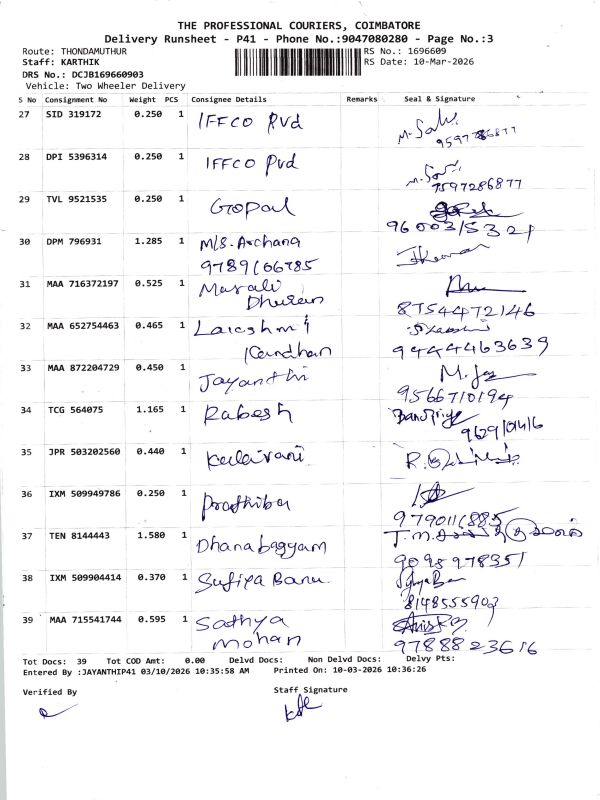 THE PROFESSIONAL COURIERS, COIMBATORE
Delivery Runsheet - P41 - Phone No.:9047080280 - Page No.:3
Route: THONDAMUTHUR RS No.: 1696609
Staff: KARTHIK RS Date: 10-Mar-2026
DRS No.: DCJB169660903
Vehicle: Two Wheeler Delivery
S No Consignment No Weight PCS Consignee Details Remarks Seal & Signature
27 SID 319172 0.250 1 IFFCO Pvd
28 DPI 5396314 0.250 1 IFFCO Pvd
7597286877
29 TVL 9521535 0.250 1 Gopal
9600315321
30 DPM 796931 1.285 1 M/S. Archana
9789106785
31 MAA 716372197 0.525 1 Murali
8754472146
32 MAA 652754463 0.465 1
Kandhan 9444463639
33 MAA 872204729 0.450 1 Jayanthi
9566710194
34 TCG 564075 1.165 1 Rakesh
35 JPR 503202560 0.440 1 Kalaivani
36 IXM 509949786 0.250 1 Prathiba
9790116885
37 TEN 8144443 1.580 1 Dhanabagyam
9095978351
38 IXM 509904414 0.370 1 Sufiya Banu.
8148555903
39 MAA 715541744 0.595 1 Sathya
Mohan 9788823616
Tot Docs: 39 Tot COD Amt: 0.00 Delvd Docs: Non Delvd Docs: Delvy Pts:
Entered By :JAYANTHIP41 03/10/2026 10:35:58 AM Printed On: 10-03-2026 10:36:26
Verified By Staff Signature